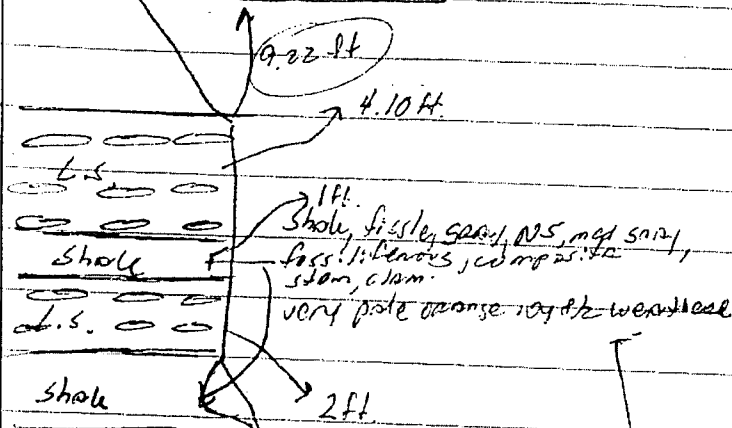 9.22 ft
4.10 ft.
L.S.
1ft.
Shale, fissle, gray, N5, med gray,
Shale F fossiliferous, composita
stem, clam.
very pale orange 10yr 8/2 weathered
L.S.
Shale 2ft.